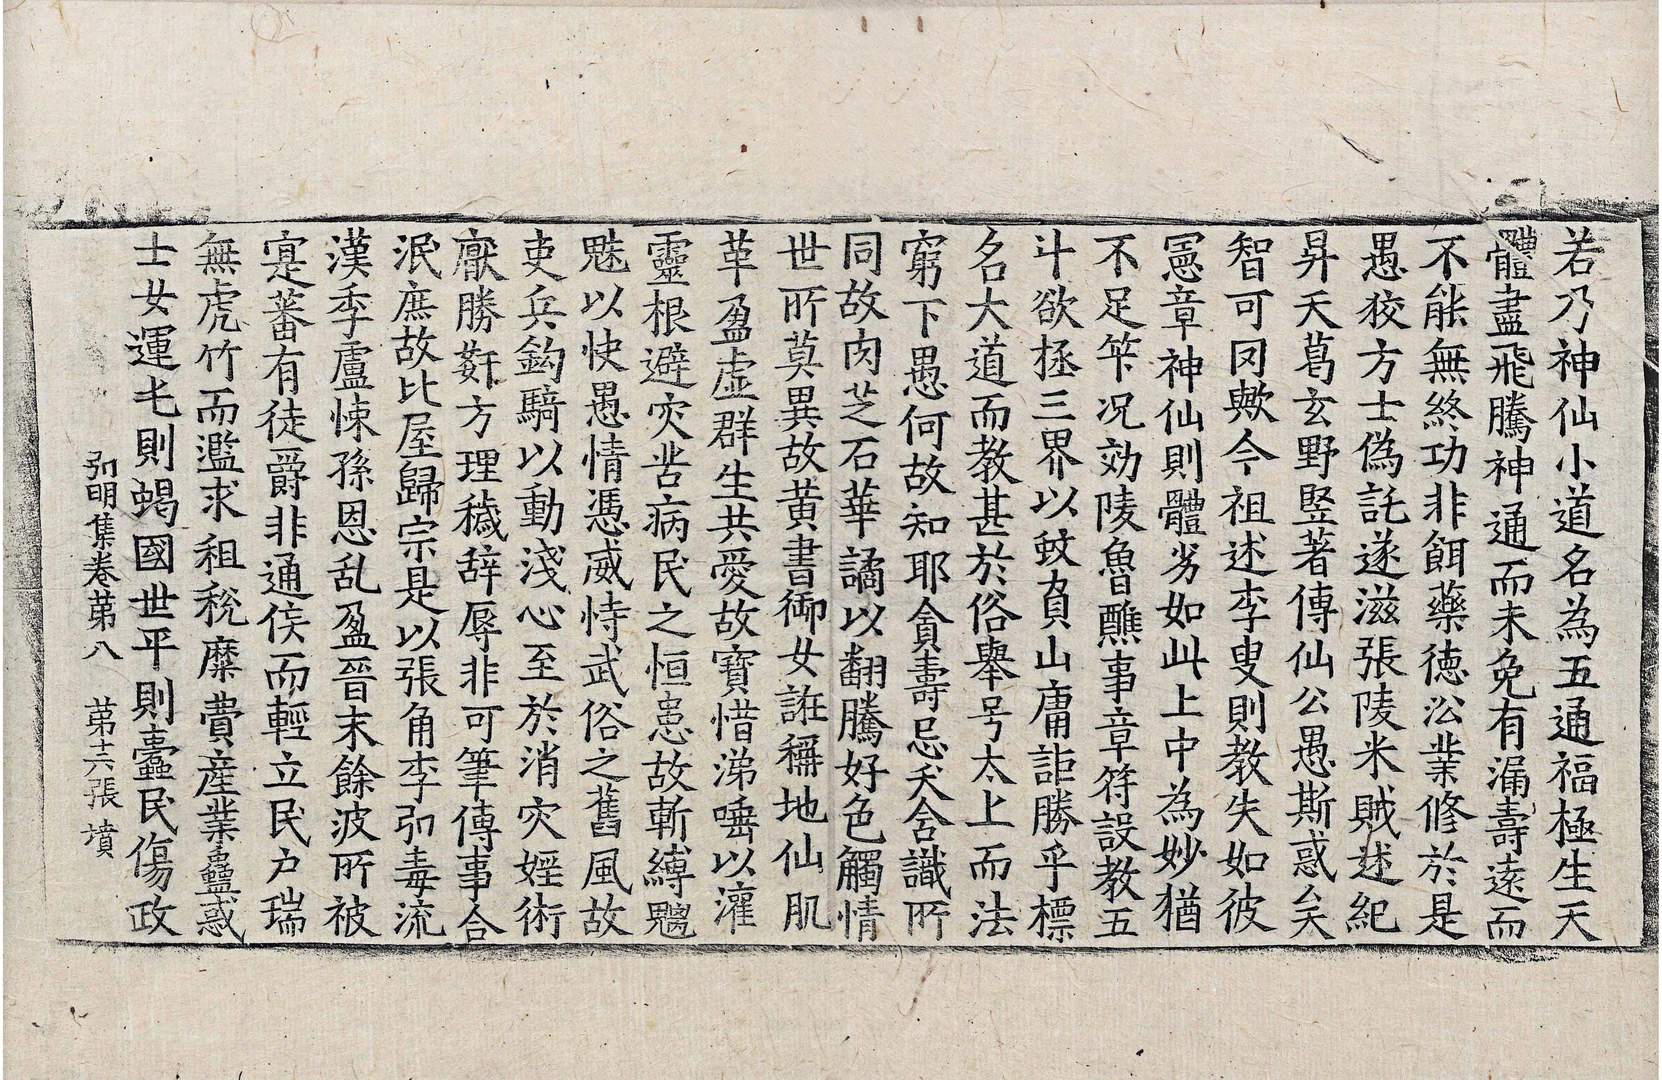 若乃神仙小道名為五通福極生天
體盡飛騰神通而未免有漏壽遠而
不能無終功非餌藥德㳂業修於是
愚狡方士偽託遂滋張陵米賊述紀
昇天葛玄野竪著傳仙公愚斯惑矣
智可罔歟今祖述李叟則教失如彼
憲章神仙則體劣如此上中為妙猶
不足筭况効陵魯醮事章符設教五
斗欲拯三界以蚊負山庸詎勝乎標
名大道而教甚於俗舉号太上而法
窮下愚何故知耶貪壽忌夭含識所
同故肉芝石華譎以翻騰好色觸情
世所莫異故黄書御女誑稱地仙肌
革盈虛群生共愛故寶惜涕唾以灌
靈根避灾苦病民之恒患故斬縛魑
魅以快愚情憑威恃武俗之舊風故
吏兵鈎騎以動淺心至於消灾婬術
厭勝姧方理穢辭辱非可筆傳事合
泯庶故比屋歸宗是以張角李弘毒流
漢季盧悚孫恩乱盈晉末餘波所被
寔蕃有徒爵非通侯而輕立民户瑞
無虎竹而濫求租稅糜費産業蠱惑
士女運屯則蝎國世平則蠹民傷政
弘明集卷苐八　苐十六張　墳